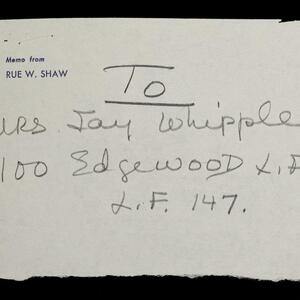 Memo from
RUE W. SHAW
To
MRS. Jay Whipple
100 EdgewooD L.F
L.F. 147.